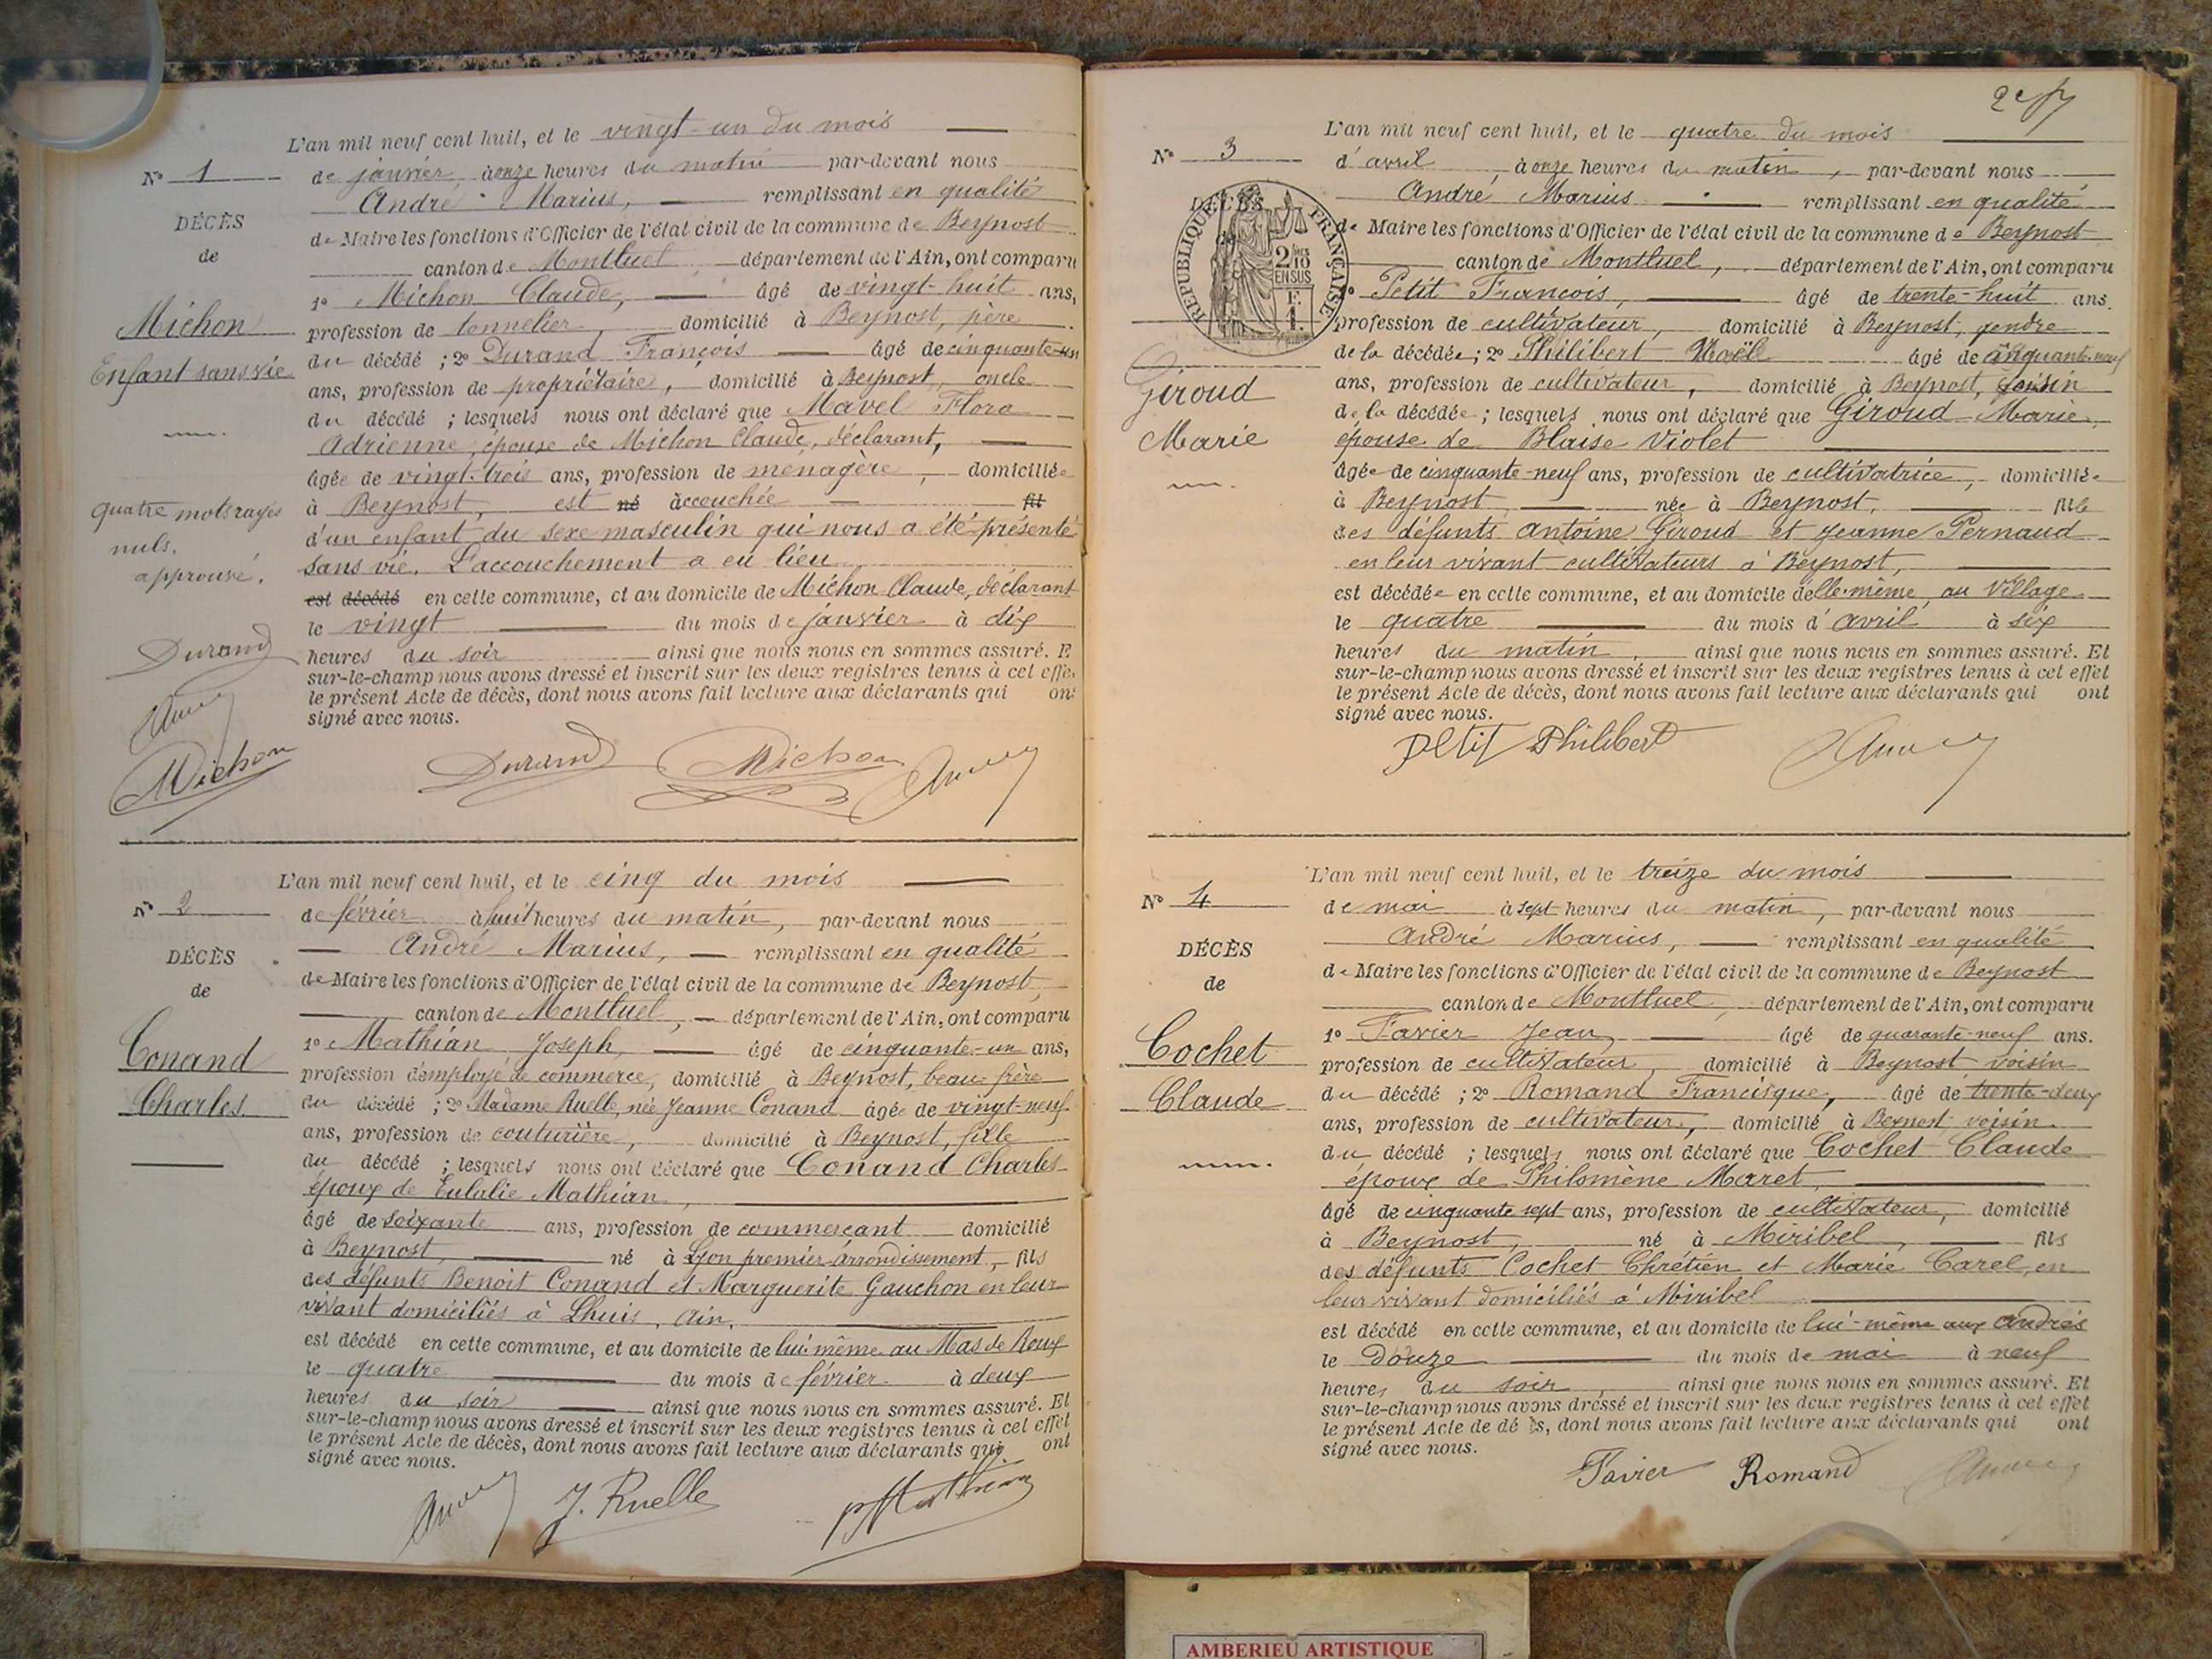 L'an mil neuf cent huit, et le vingt-un du mois
N° 1
de janvier, à onze heures du matin par-devant nous
André Marius, remplissant en qualité
DÉCÈS
de Maire les fonctions d'Officier de l'état civil de la commune de Beynost
de
canton de Montluel, département de l'Ain, ont comparu
1° Michon Claude, âgé de vingt-huit ans,
Michon
profession de tonnelier, domicilié à Beynost, père
Enfant sans vie
du décédé ; 2° Durand François âgé de cinquante-un
ans, profession de propriétaire, domicilié à Beynost, oncle
du décédé ; lesquels nous ont déclaré que Mavel Flora
Adrienne, épouse de Michon Claude, déclarant,
âgée de vingt-trois ans, profession de ménagère, domiciliée
quatre mots rayés
à Beynost, est né accouchée fil
nuls.
d'un enfant du sexe masculin qui nous a été présenté
approuvé.
sans vie. L'accouchement a eu lieu
est décédé en cette commune, et au domicile de Michon Claude, déclarant
le vingt du mois de janvier à dix
Durand
heures du soir ainsi que nous nous en sommes assuré. E
sur-le-champ nous avons dressé et inscrit sur les deux registres tenus à cet effe
le présent Acte de décès, dont nous avons fait lecture aux déclarants qui on
signé avec nous.
André
Michon
Durand Michon André
L'an mil neuf cent huit, et le cinq du mois
N° 2
de février à huit heures du matin, par-devant nous
André Marius, remplissant en qualité
DÉCÈS
de Maire les fonctions d'Officier de l'état civil de la commune de Beynost,
de
canton de Montluel, département de l'Ain, ont comparu
Conand
1° Mathian Joseph, âgé de cinquante-un ans,
profession d'employé de commerce, domicilié à Beynost, beau-frère
Charles
du décédé ; 2° Madame Ruelle, née Jeanne Conand âgée de vingt-neuf
ans, profession de couturière, domicilié à Beynost, fille
du décédé ; lesquels nous ont déclaré que Conand Charles
époux de Eulalie Mathian,
âgé de soixante ans, profession de commerçant domicilié
à Beynost, né à Lyon premier arrondissement, fils
des défunts Benoit Conand et Marguerite Gauchon en leur
vivant domiciliés à Lhuis, Ain,
est décédé en cette commune, et au domicile de lui-même au Mas de Roux
le quatre du mois de février à deux
heures du soir ainsi que nous nous en sommes assuré. Et
sur-le-champ nous avons dressé et inscrit sur les deux registres tenus à cet effet
le présent Acte de décès, dont nous avons fait lecture aux déclarants qui ont
signé avec nous.
André J. Ruelle Mathian
L'an mil neuf cent huit, et le quatre du mois
N° 3
d'avril, à onze heures du matin, par-devant nous
André Marius remplissant en qualité
DÉCÈS
RÉPUBLIQUE FRANÇAISE
2/10 EN SUS
F. 1.
de Maire les fonctions d'Officier de l'état civil de la commune de Beynost
canton de Montluel, département de l'Ain, ont comparu
Petit François, âgé de trente-huit ans.
profession de cultivateur, domicilié à Beynost, gendre
Giroud
de la décédée ; 2° Philibert Noël âgé de cinquante-neuf
ans, profession de cultivateur, domicilié à Beynost, cousin
Marie
de la décédée ; lesquels nous ont déclaré que Giroud Marie,
épouse de Blaise Violet
âgée de cinquante-neuf ans, profession de cultivatrice, domiciliée
à Beynost, née à Beynost, fille
des défunts Antoine Giroud et Jeanne Pernaud
en leur vivant cultivateurs à Beynost,
est décédée en cette commune, et au domicile d'elle-même, au Village
le quatre du mois d'avril à six
heures du matin, ainsi que nous nous en sommes assuré. Et
sur-le-champ nous avons dressé et inscrit sur les deux registres tenus à cet effet
le présent Acte de décès, dont nous avons fait lecture aux déclarants qui ont
signé avec nous.
Petit Philibert André
L'an mil neuf cent huit, et le treize du mois
N° 4
de mai à sept heures du matin, par-devant nous
André Marius, remplissant en qualité
DÉCÈS
de Maire les fonctions d'Officier de l'état civil de la commune de Beynost
de
canton de Montluel, département de l'Ain, ont comparu
Cochet
1° Favier Jean âgé de quarante-neuf ans.
profession de cultivateur, domicilié à Beynost voisin
Claude
du décédé ; 2° Romand Francisque, âgé de trente-deux
ans, profession de cultivateur, domicilié à Beynost voisin.
du décédé ; lesquels nous ont déclaré que Cochet Claude
époux de Philomène Maret,
âgé de cinquante sept ans, profession de cultivateur, domicilié
à Beynost, né à Miribel, fils
des défunts Cochet Chrétien et Marie Carel, en
leur vivant domiciliés à Miribel
est décédé en cette commune, et au domicile de lui-même aux Andrés
le douze du mois de mai à neuf
heures du soir, ainsi que nous nous en sommes assuré. Et
sur-le-champ nous avons dressé et inscrit sur les deux registres tenus à cet effet
le présent Acte de dé ès, dont nous avons fait lecture aux déclarants qui ont
signé avec nous.
Favier Romand André
AMBERIEU ARTISTIQUE